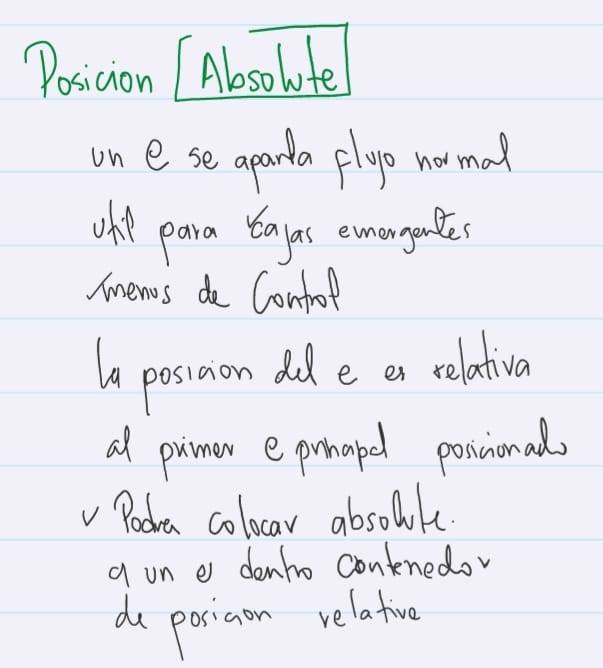 Posicion [Absolute]
un e se aparta flujo normal
util para cajas emergentes
menus de Control
la posicion del e es relativa
al primer e principal posicionado
✓ Podra colocar absolute.
a un e dentro contenedor
de posicion relative